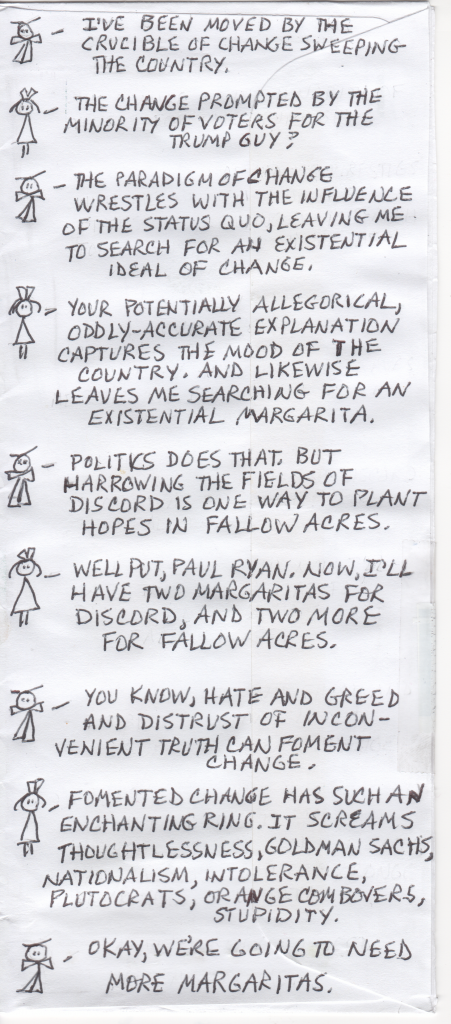 - I'VE BEEN MOVED BY THE
CRUCIBLE OF CHANGE SWEEPING
THE COUNTRY.
- THE CHANGE PROMPTED BY THE
MINORITY OF VOTERS FOR THE
TRUMP GUY?
- THE PARADIGM OF CHANGE
WRESTLES WITH THE INFLUENCE
OF THE STATUS QUO, LEAVING ME
TO SEARCH FOR AN EXISTENTIAL
IDEAL OF CHANGE.
- YOUR POTENTIALLY ALLEGORICAL,
ODDLY-ACCURATE EXPLANATION
CAPTURES THE MOOD OF THE
COUNTRY. AND LIKEWISE
LEAVES ME SEARCHING FOR AN
EXISTENTIAL MARGARITA.
- POLITICS DOES THAT. BUT
HARROWING THE FIELDS OF
DISCORD IS ONE WAY TO PLANT
HOPES IN FALLOW ACRES.
- WELL PUT, PAUL RYAN. NOW, I'LL
HAVE TWO MARGARITAS FOR
DISCORD, AND TWO MORE
FOR FALLOW ACRES.
- YOU KNOW, HATE AND GREED
AND DISTRUST OF INCON-
VENIENT TRUTH CAN FOMENT
CHANGE.
- FOMENTED CHANGE HAS SUCH AN
ENCHANTING RING. IT SCREAMS
THOUGHTLESSNESS, GOLDMAN SACHS,
NATIONALISM, INTOLERANCE,
PLUTOCRATS, ORANGE COMBOVERS,
STUPIDITY.
- OKAY, WE'RE GOING TO NEED
MORE MARGARITAS.